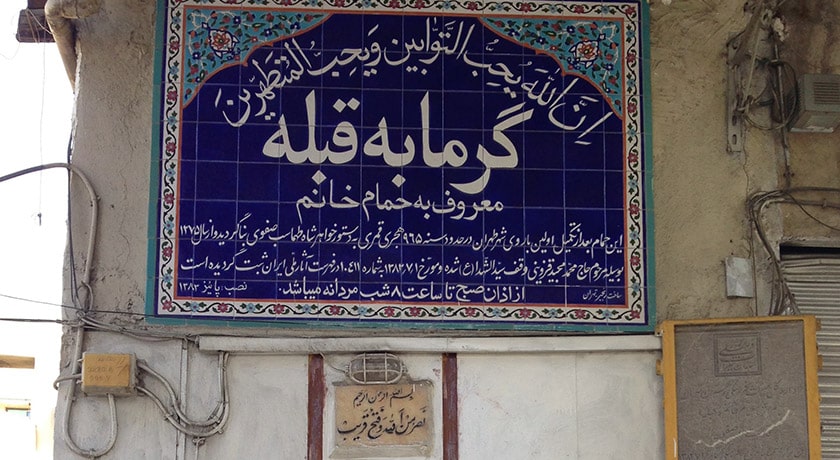 ان الله یحب التوابین و یحب المتطهرین
گرمابه قبله
معروف به حمام خانم
این حمام بعد از تکمیل اولین باروی شهر طهران در حدود سنه ۹۶۵ هجری قمری به دستور خواهر شاه طهماسب صفوی بنا گردید و از سال ۱۲۷۵
بوسیله مرحوم حاج محمد قزوینی وقف سیدالشهدا (ع) شده و مورخ ۱۳۸۳/۷/۱ به شماره ۱۰۴۱۱ در فهرست آثار ملی ایران ثبت گردیده است
از اذان صبح تا ساعت ۸ شب مردانه میباشد.
نصب: پائیز ۱۳۸۳
بسم الله الرحمن الرحیم
نصر من الله و فتح قریب